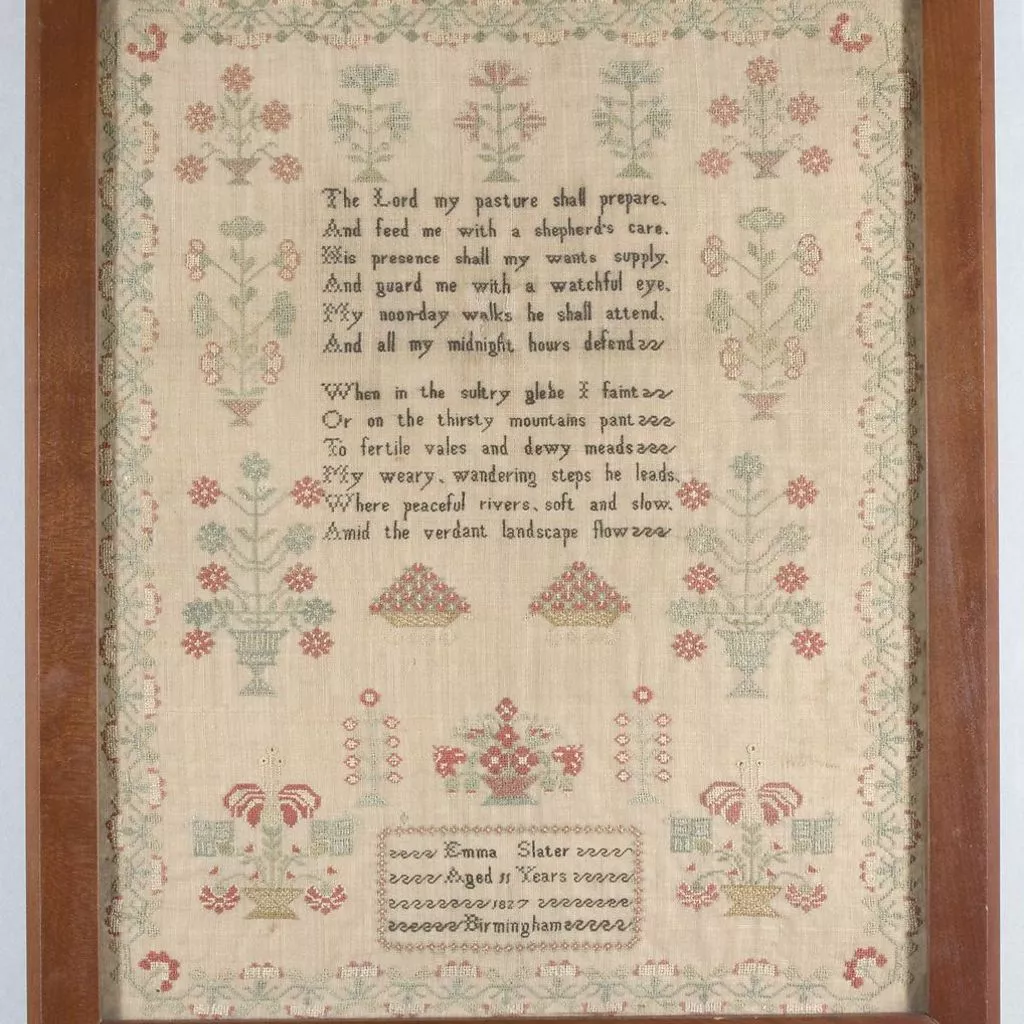 The Lord my pasture shall prepare.
And feed me with a shepherd's care.
His presence shall my wants supply.
And guard me with a watchful eye.
My noon-day walks he shall attend.
And all my midnight hours defend
When in the sultry glebe I faint
Or on the thirsty mountains pant
To fertile vales and dewy meads
My weary, wandering steps he leads.
Where peaceful rivers, soft and slow.
Amid the verdant landscape flow
Emma Slater
Aged 11 Years
1827
Birmingham